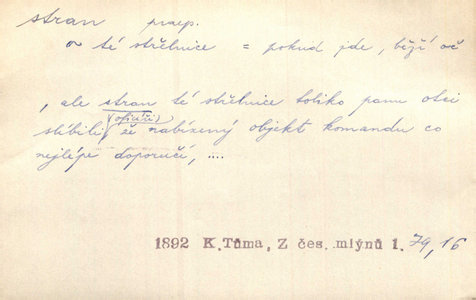 stran praep.
~ té střelnice = pokud jde, běží oč
, ale stran té střelnice toliko panu otci
(oficíři)
slíbili, že nabízený objekt komandu co
nejlépe doporučí, ....
1892 K. Tůma, Z čes. mlýnů 1. 79, 16